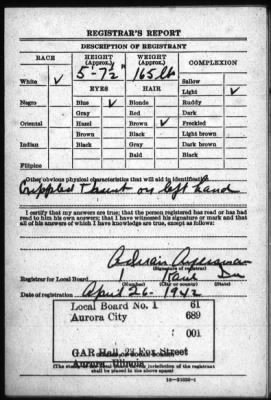 REGISTRAR'S REPORT
DESCRIPTION OF REGISTRANT
RACE HEIGHT (Approx.) WEIGHT (Approx.) COMPLEXION
5'-7½" 165 lb
White ✓ EYES HAIR Sallow
Light ✓
Negro Blue ✓ Blonde Ruddy
Gray Red Dark
Oriental Hazel Brown ✓ Freckled
Brown Black Light brown
Indian Black Gray Dark brown
Bald Black
Filipino
Other obvious physical characteristics that will aid in identification
Crippled on left hand
I certify that my answers are true; that the person registered has read or has had
read to him his own answers; that I have witnessed his signature or mark and that
all of his answers of which I have knowledge are true, except as follows:
(Signature of registrar)
Registrar for Local Board 1
(Number) (City or county) (State)
Date of registration April 26 - 1942
Local Board No. 1 61
Aurora City 689
001
GAR Hall, 23 Fox Street
Aurora, Illinois
(The of the jurisdiction of the registrant
shall be placed in the above space)